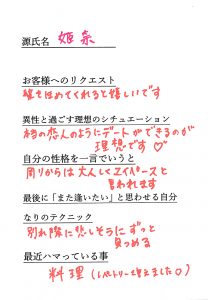 源氏名 姫奈
お客様へのリクエスト
髪をほめてくれると嬉しいです
異性と過ごす理想のシチュエーション
本当の恋人のようにデートができるのが
理想です♡
自分の性格を一言でいうと
周りからは大人しくマイペースと
言われます
最後に「また逢いたい」と思わせる自分
なりのテクニック
別れ際に悲しそうにずっと
見つめる
最近ハマっている事
料理(レパートリー増えました○)